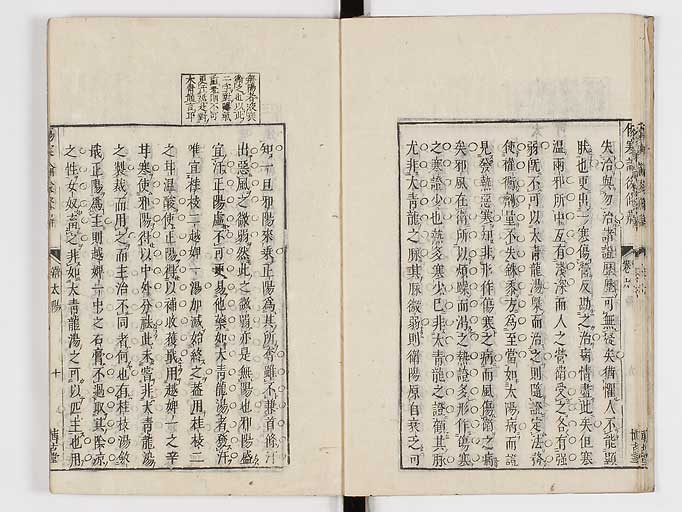 失治與勿治諸證歷歷可無從失猶懼人不能顯
然也更出一寒傷營反勘之治病情盡此矣但寒
溫兩邪所中互有淺深而人之營衛受之各有強
弱既不可以大青龍湯槩而治之則隨證定法務
使權衡劑量不失銖黍方為至當如太陽病而證
見發熱惡寒知非形作傷寒之病而風傷衛之病
矣邪風在衛所以煩躁而渴之熱證多形作傷寒
之寒證少也熱多寒少已非大青龍之證值其脈
尤非大青龍之脈其脈微弱則衛陽原自衰之可
知一旦邪陽來乘正陽為其所奪雖不兼首條汗
出惡風之微弱然此之微弱亦是無陽也邪陽盛
宜汗正陽虛不可更易他藥如大青龍湯者發汗
唯宜桂枝二越婢一湯加減始終之蓋用桂枝二
之甘溫酸使正陽得以補收復戢用越婢一之辛
甘寒使邪陽得以中外分祛此未嘗非大青龍湯
之製裁而用之而主治不同者何也有桂枝湯斂
戢正陽為主則越婢一中之石膏不過取其陰涼
之性女奴畜之非如大青龍湯之可以匹主也用
傷寒論後條辨
卷六
辨太陽
十
博古堂